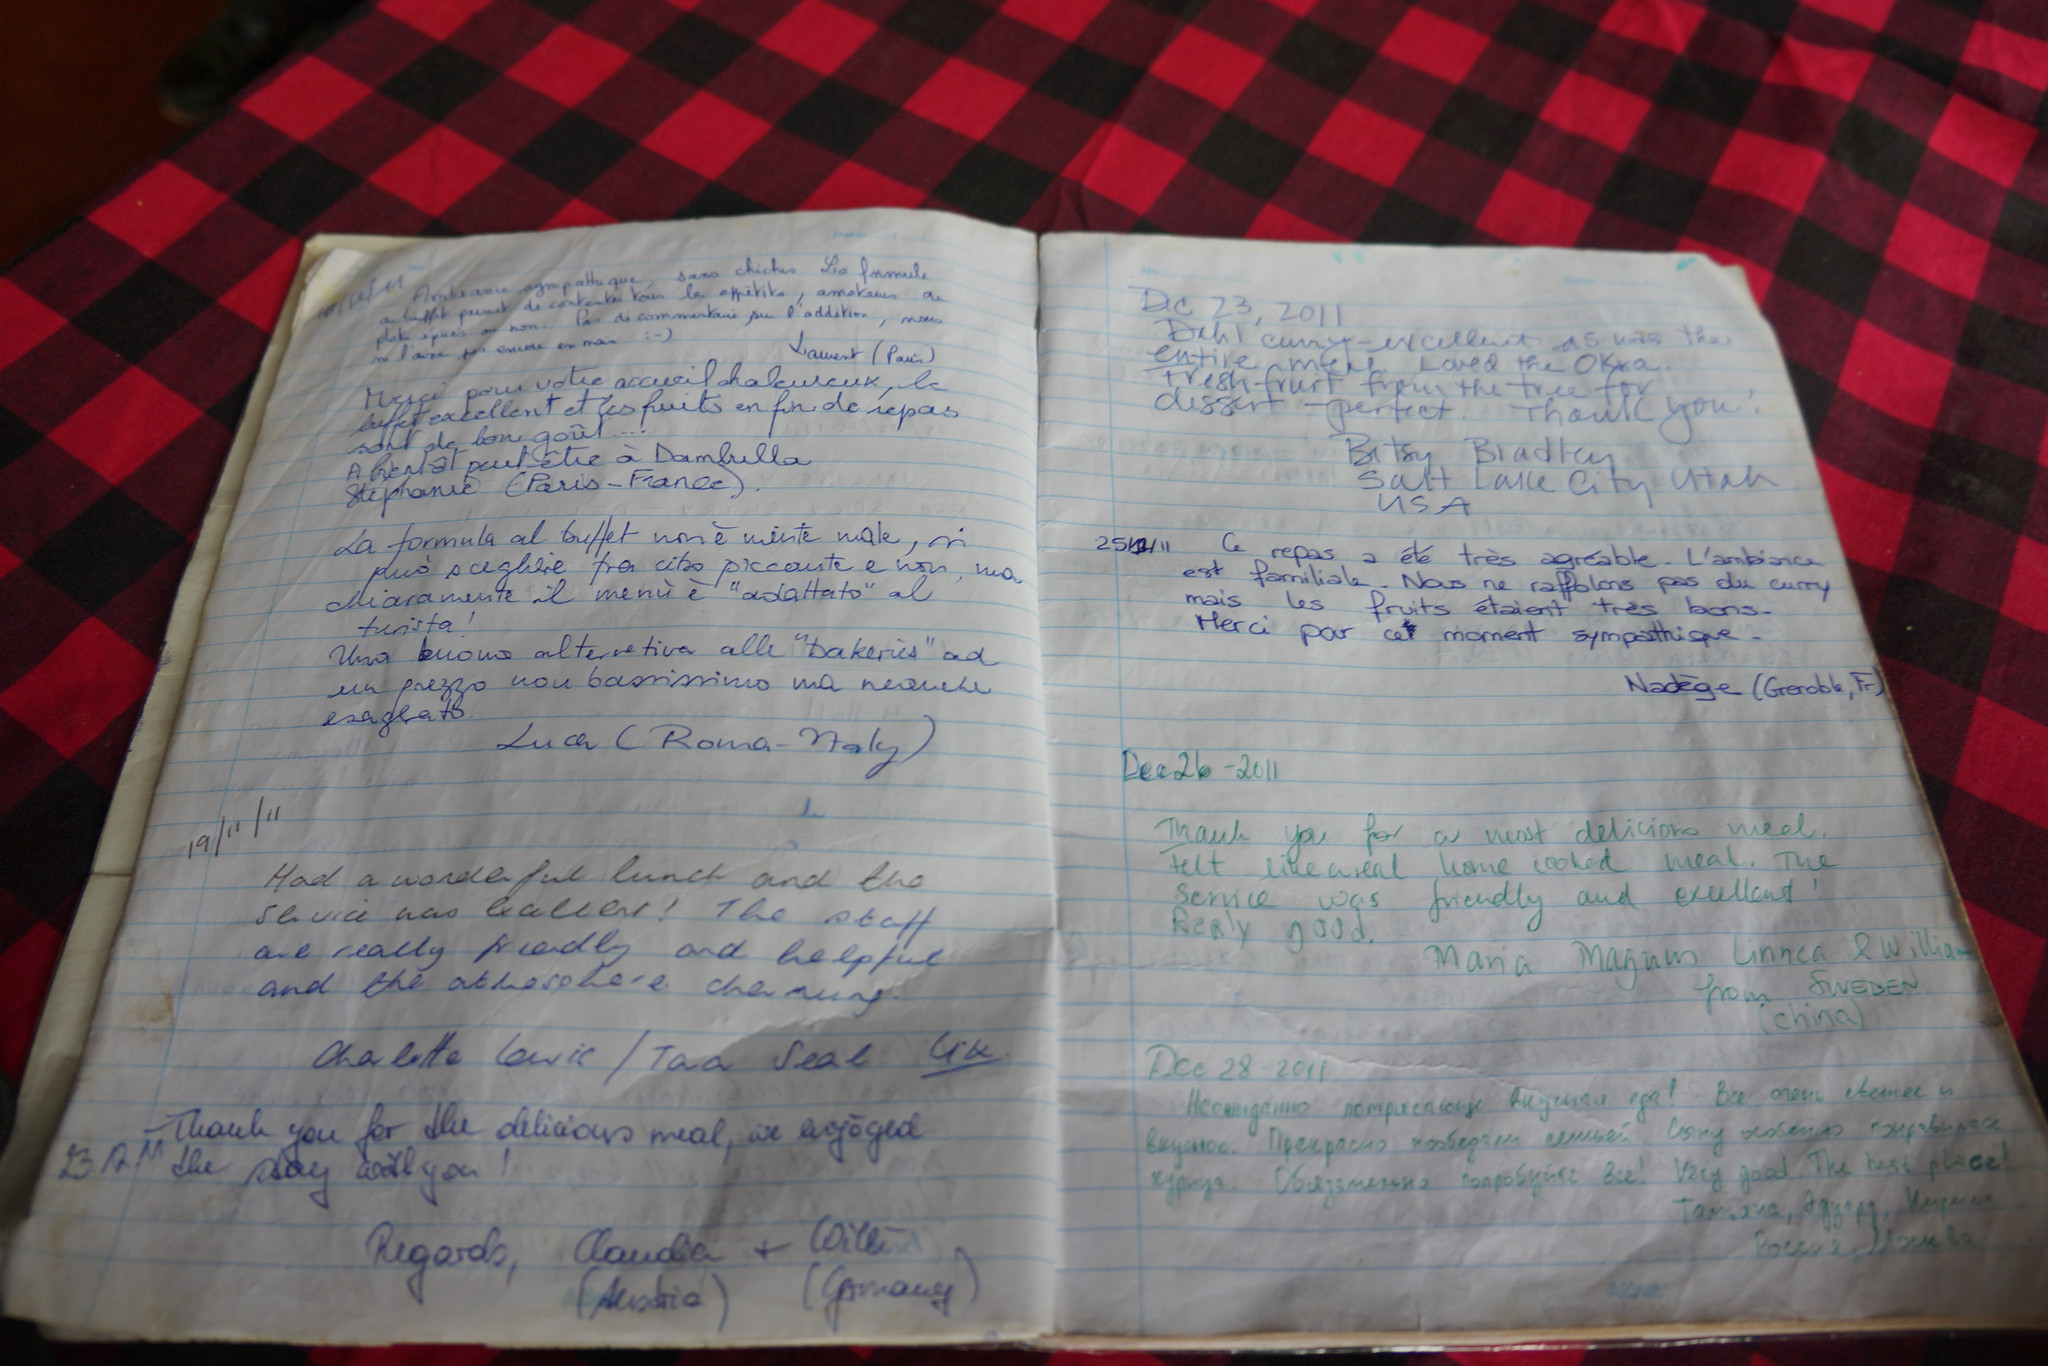 Ambiance sympathique, sans chichis La formule
au buffet permet de contenter tous les appétits, amateurs de
plats épicés ou non. Pas de commentaire sur l'addition, nous
ne l'avons pas encore en main :-)
Laurent (Paris)
Merci pour votre accueil chaleureux, le
buffet excellent et les fruits en fin de repas
sont de bon goût...
A bientôt peut être à Dambulla
Stéphanie (Paris-France).
La formula al buffet non è niente male, si
può scegliere fra cibo piccante e non, ma
chiaramente il menù è "adattato" al
turista!
Una buona alternativa alle "bakeries" ad
un prezzo non bassissimo ma neanche
esagerato.
Luca (Roma-Italy)
19/11/11
Had a wonderful lunch and the
service was excellent! The staff
are really friendly and helpful
and the atmosphere charming.
Charlotte / Tara Seal
Thank you for the delicious meal, we enjoyed
23.12.11 the stay with you!
Regards, Claudia +
(Austria) (Germany)
Dec 23, 2011
Dahl curry-excellent as was the
entire meal. Loved the Okra.
Fresh fruit from the tree for
dessert - perfect. Thank you!
Betsy Bradley
Salt Lake City Utah
USA
25/12/11 Ce repas a été très agréable. L'ambiance
est familiale. Nous ne raffolons pas du curry
mais les fruits étaient très bons.
Merci par cet moment sympathique.
Nadège (Grenoble, Fr)
Dec 26 - 2011
Thank you for a most delicious meal.
Felt like a real home cooked meal. The
Service was friendly and excellent!
Realy good.
Maria Magnus Linnea & William
from SWEDEN
(china)
Dec 28 - 2011
Неожиданно потрясающе вкусная еда! Все очень свежее и
вкусное. Прекрасно пообедали семьей. Сыну особенно понравилась
курица. Обязательно попробуйте все! Very good. The best place!
Татьяна, Эдуард, Кирилл
Россия, Москва